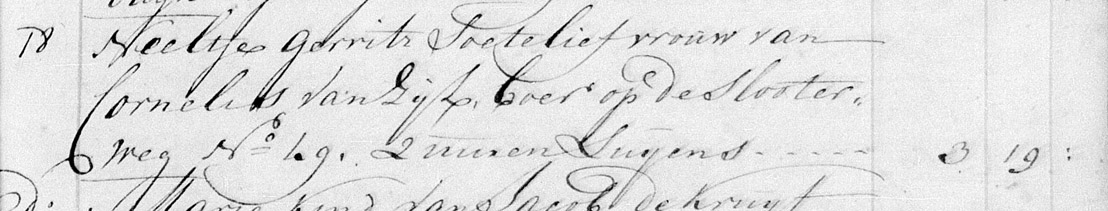 18 Neeltje Gerrits Soetelief vrouw van
Cornelis van Zijl, Boer op de Slooter-
weg No 49. 2 uuren Luyens ----- 3 19 :
Marie kind van Jacob de Kruyf